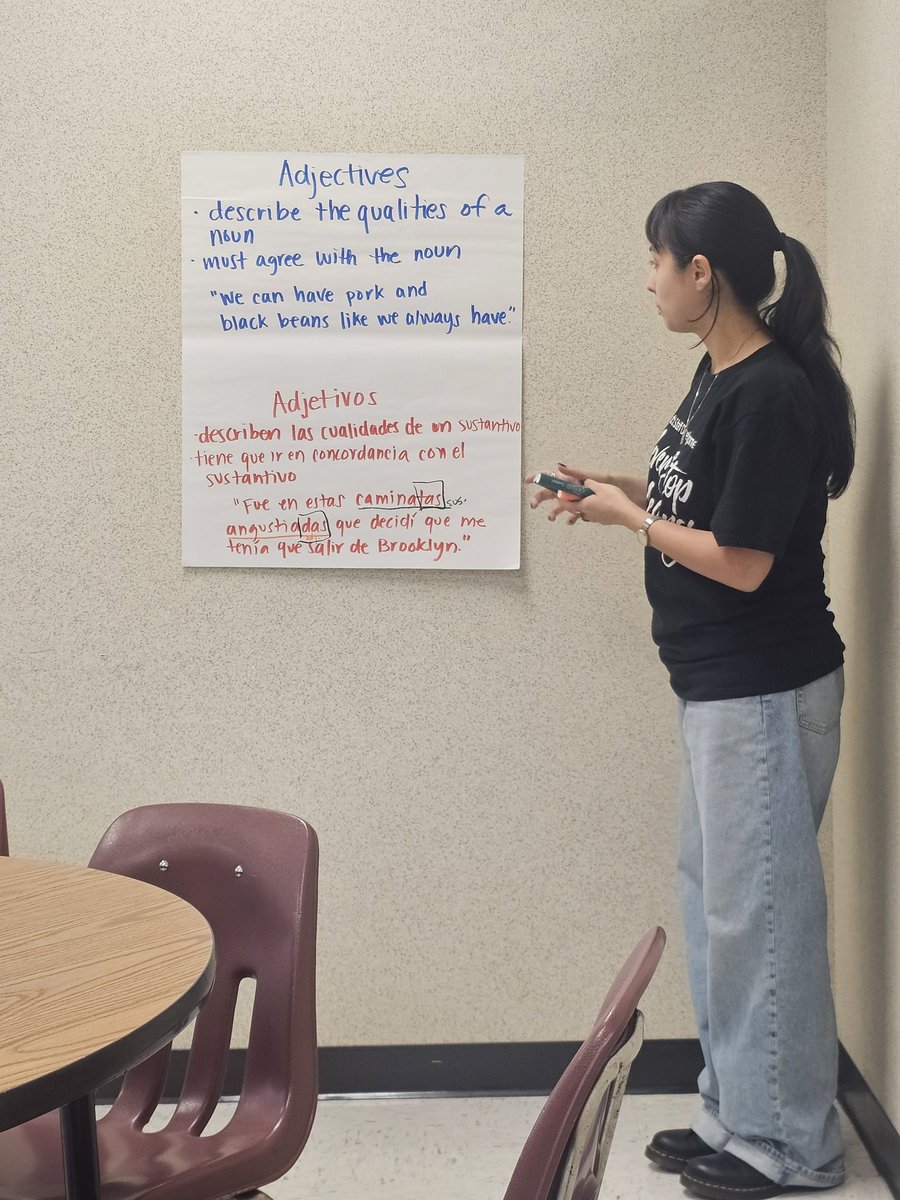 Adjectives
· describe the qualities of a
noun
· must agree with the noun
"We can have pork and
black beans like we always have."
Adjetivos
· describen las cualidades de un sustantivo
· tiene que ir en concordancia con el
sustantivo
"Fue en estas caminatas sus.
angustiadas que decidí que me
tenía que salir de Brooklyn."